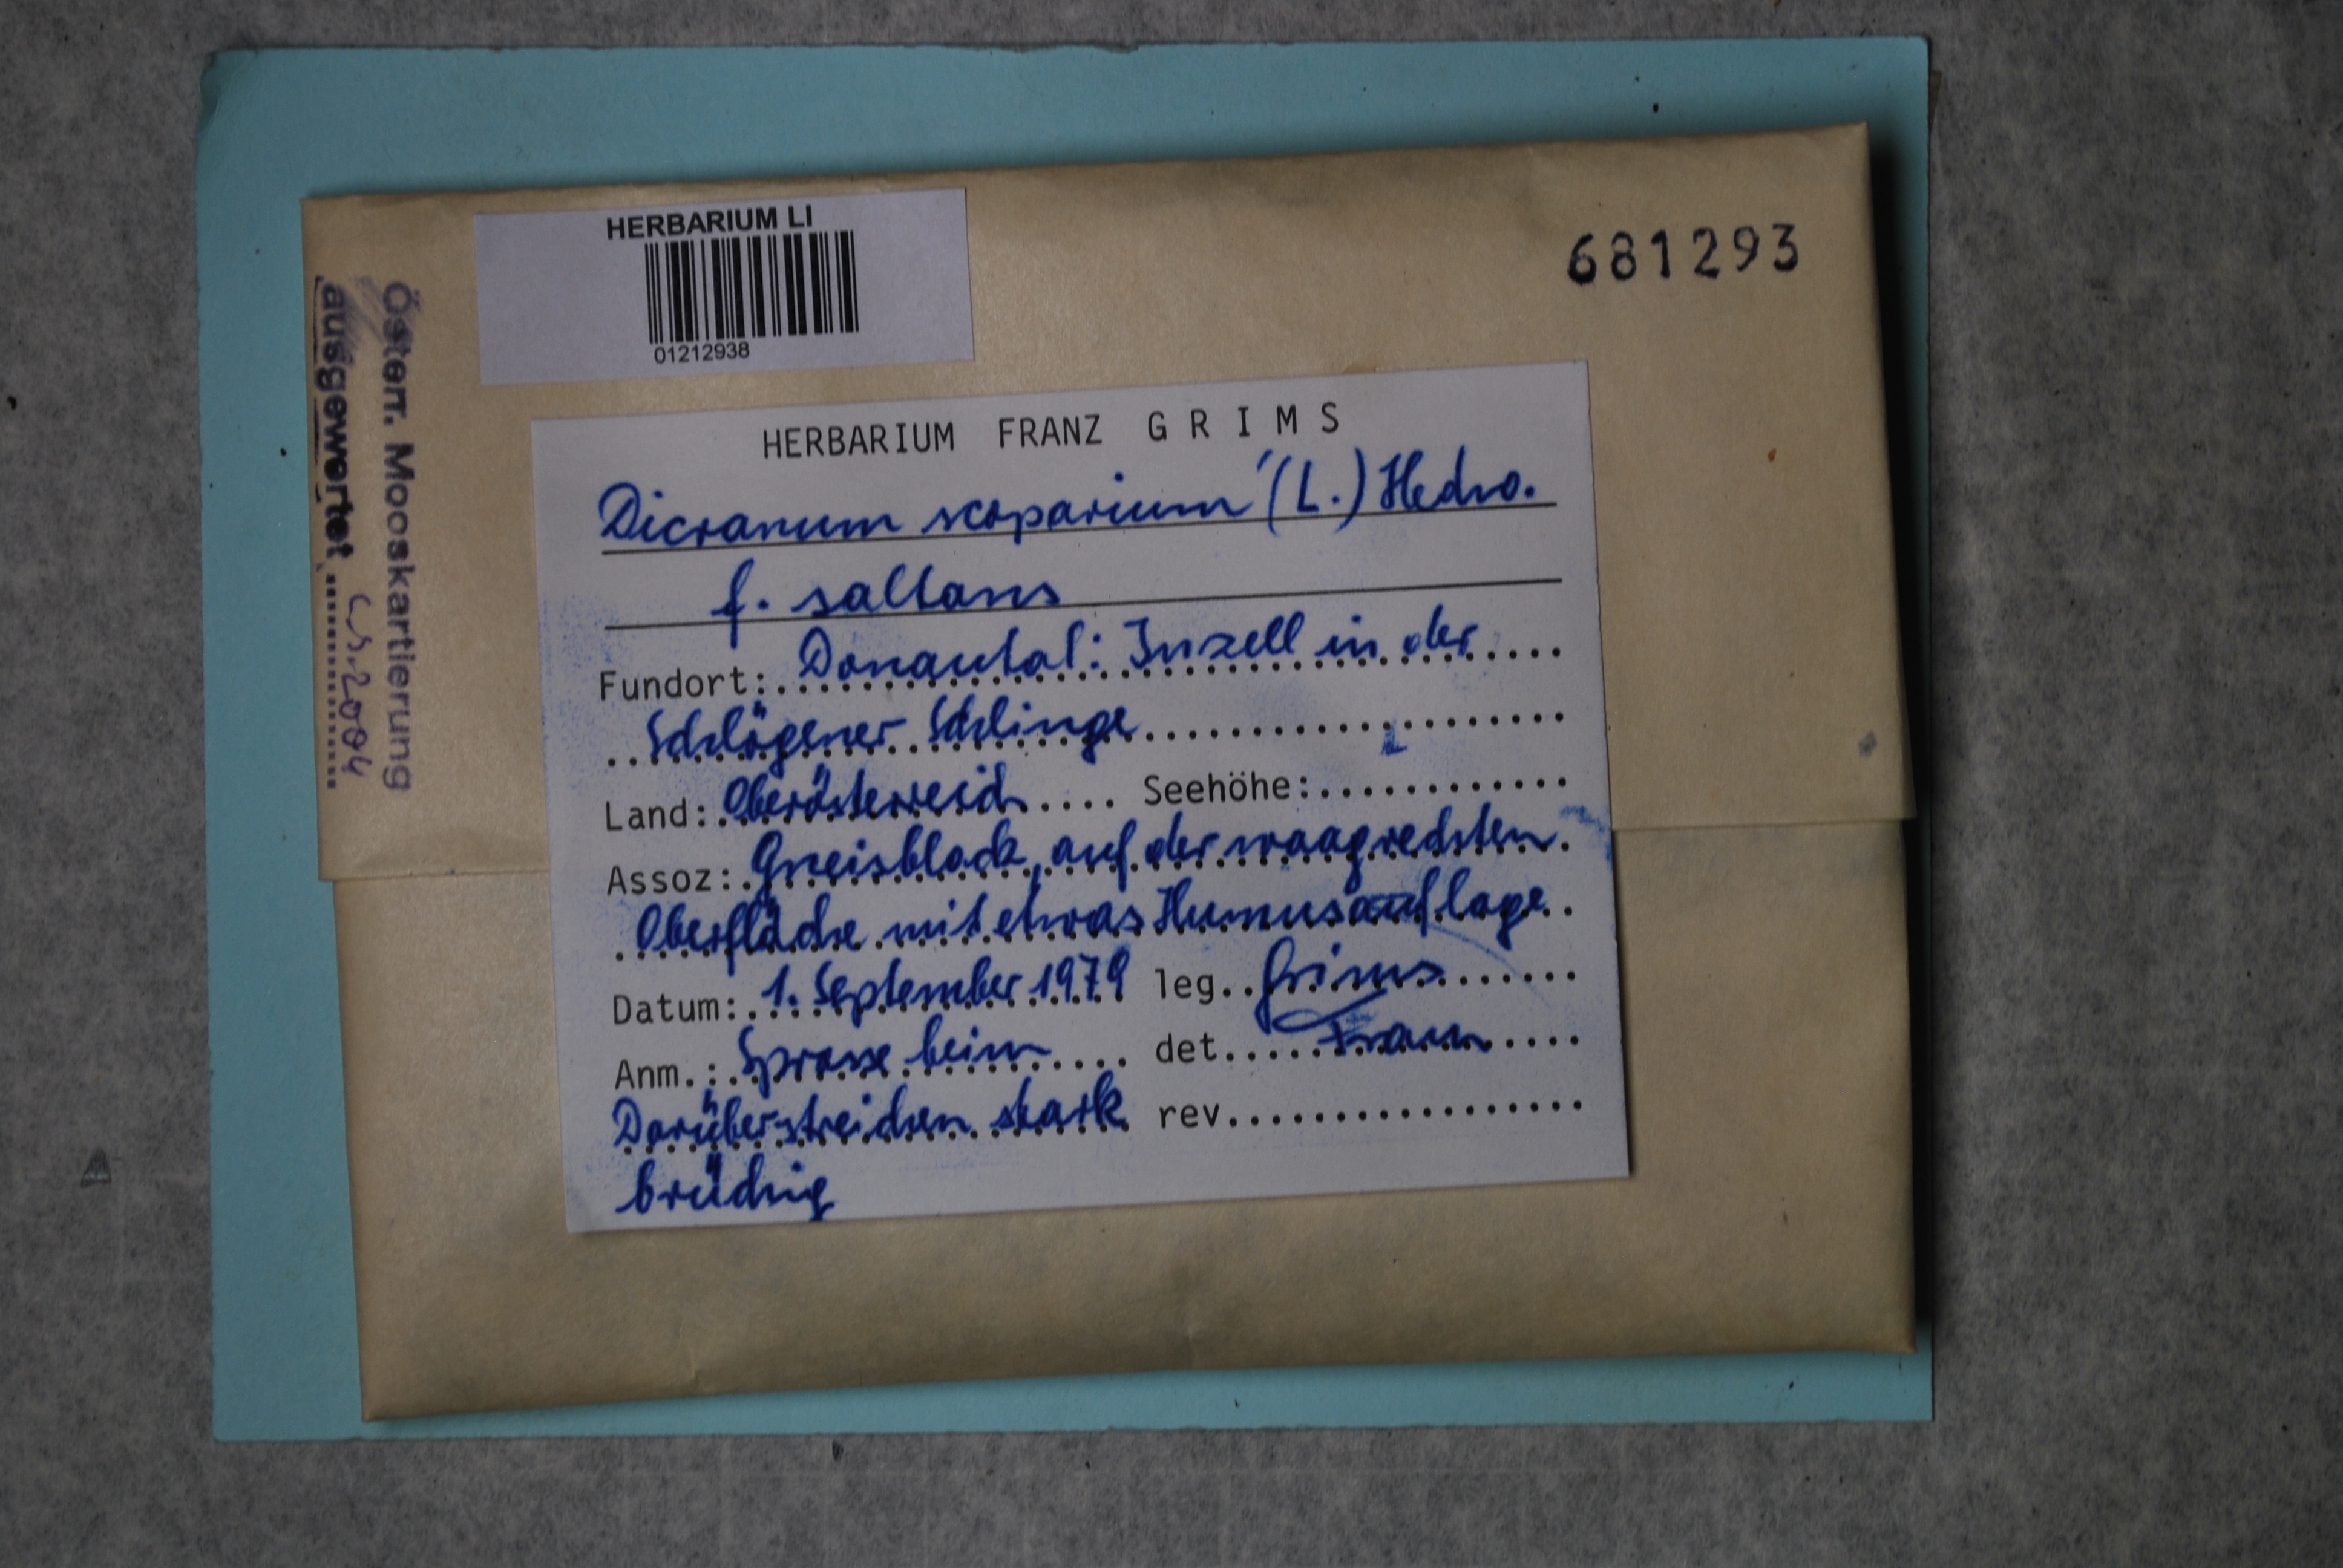 HERBARIUM LI
01212938
681293
Österr. Mooskartierung
ausgewertet ........ 2004
HERBARIUM FRANZ GRIMS
Dicranum scoparium (L.) Hedw.
f. saltans
Fundort: Donautal: Inzell in der
Schlögener Schlinge
Land: Oberösterreich Seehöhe:
Assoz: Gneisblock, auf der waagrechten
Oberfläche mit etwas Humusauflage
Datum: 1. September 1979 leg. Grims
Anm.: Sprosse beim det.
Darüberstreichen stark rev.
brüchig